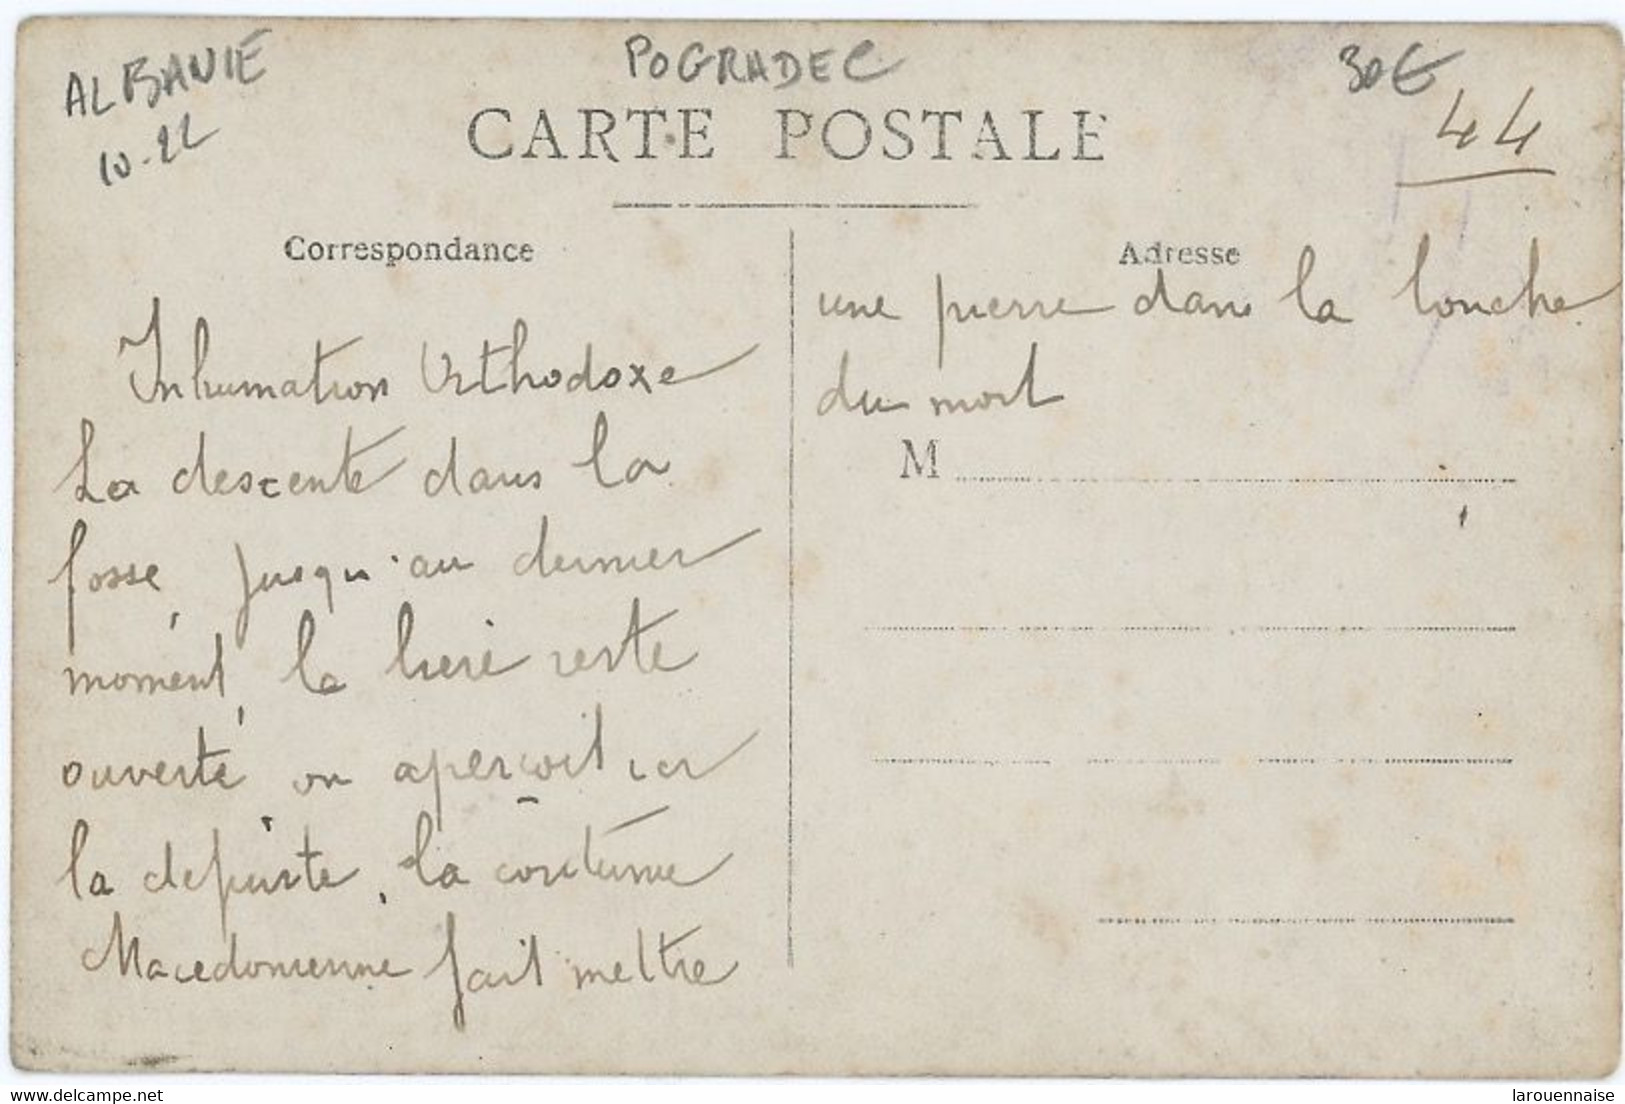 ALBANIE
10-22
POGRADEC
30€
44
CARTE POSTALE
Correspondance
Adresse
Inhumation Orthodoxe
La descente dans la
fosse, jusqu'au dernier
moment, la biere reste
ouverte, on aperçoit ici
la defunte, la coutume
Macedonienne fait mettre
une pierre dans la bouche
du mort
M
https://www.delcampe.net
larouennaise